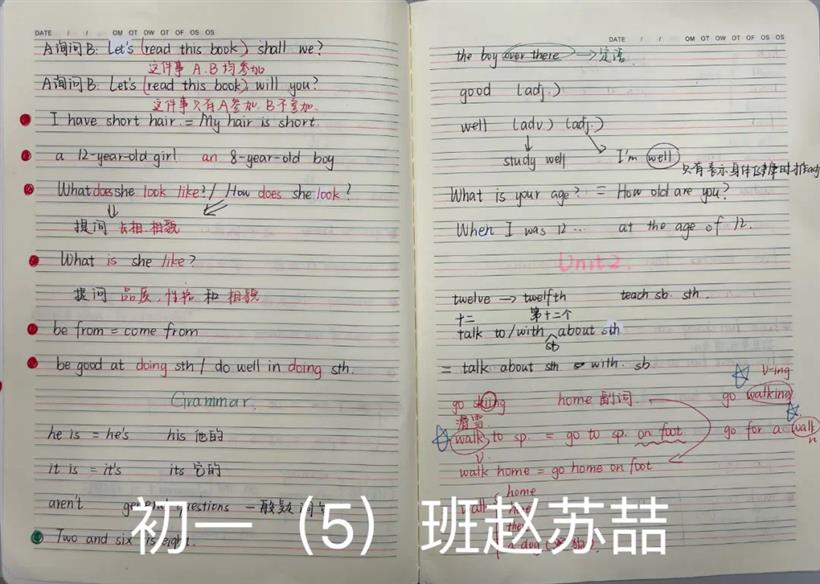 DATE / / OM OT OW OT OF OS OS
A询问B: Let's (read this book) shall we?
这件事 A.B均参加
A询问B: Let's (read this book) will you?
这件事只有A参加.B不参加.
I have short hair. = My hair is short.
a 12-year-old girl an 8-year-old boy
What does she look like? / How does she look?
提问 长相.相貌
What is she like?
提问 品质、性格 和 相貌
be from = come from
be good at doing sth / do well in doing sth.
Grammar.
he is = he's his 他的
it is = it's its 它的
aren't general questions 一般疑问句
Two and six is eight.
DATE / / OM OT OW OT OF OS OS
the boy over there → 定语
good (adj.)
well (adv.) (adj.)
study well I'm well
只有表示身体健康时
What is your age? = How old are you?
When I was 12 ... at the age of 12.
Unit 2.
twelve → twelfth teach sb. sth.
十二 第十二个
talk to/with about sth
sb
= talk about sth with. sb
V-ing
go skiing home 副词 go walking
滑雪
walk to sp. = go to sp. on foot go for a walk
v n
walk home = go home on foot
walk home
初一（5）班赵苏喆